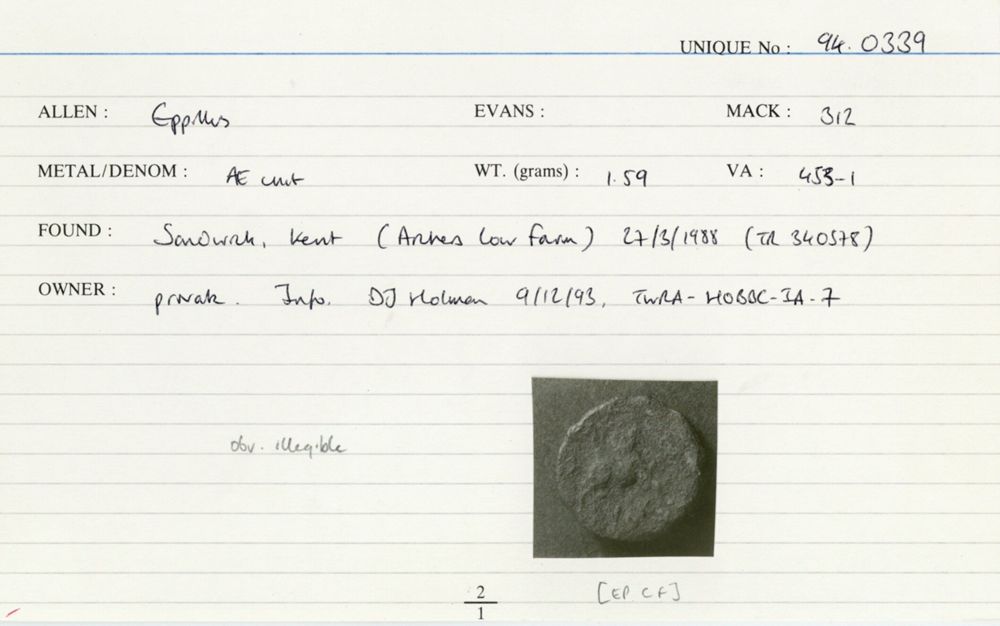 UNIQUE No : 94.0339
ALLEN : Eppillus EVANS : MACK : 312
METAL/DENOM : AE unit WT. (grams) : 1.59 VA : 453-1
FOUND : Sandwich, Kent (Archers Low Farm) 27/3/1988 (TR 340578)
OWNER : private. Info. DJ Holman 9/12/93, TWRA-HOBBC-IA-7
obv. illegible
2
1
[EP CF]